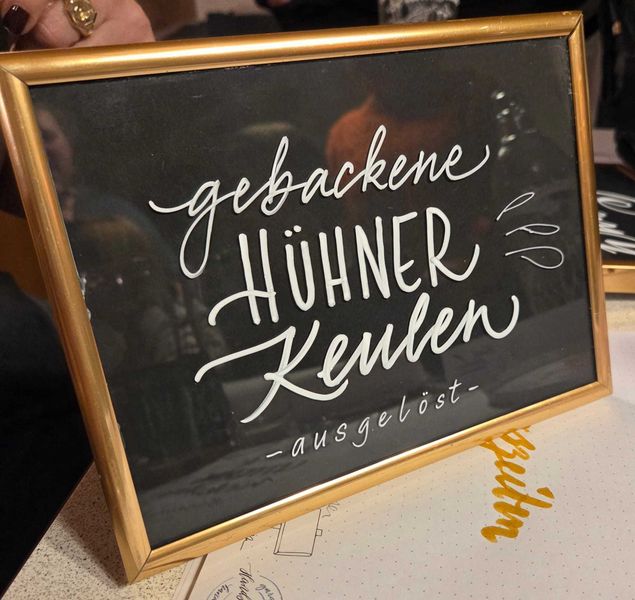 gebackene
HÜHNER
Keulen
-ausgelöst-